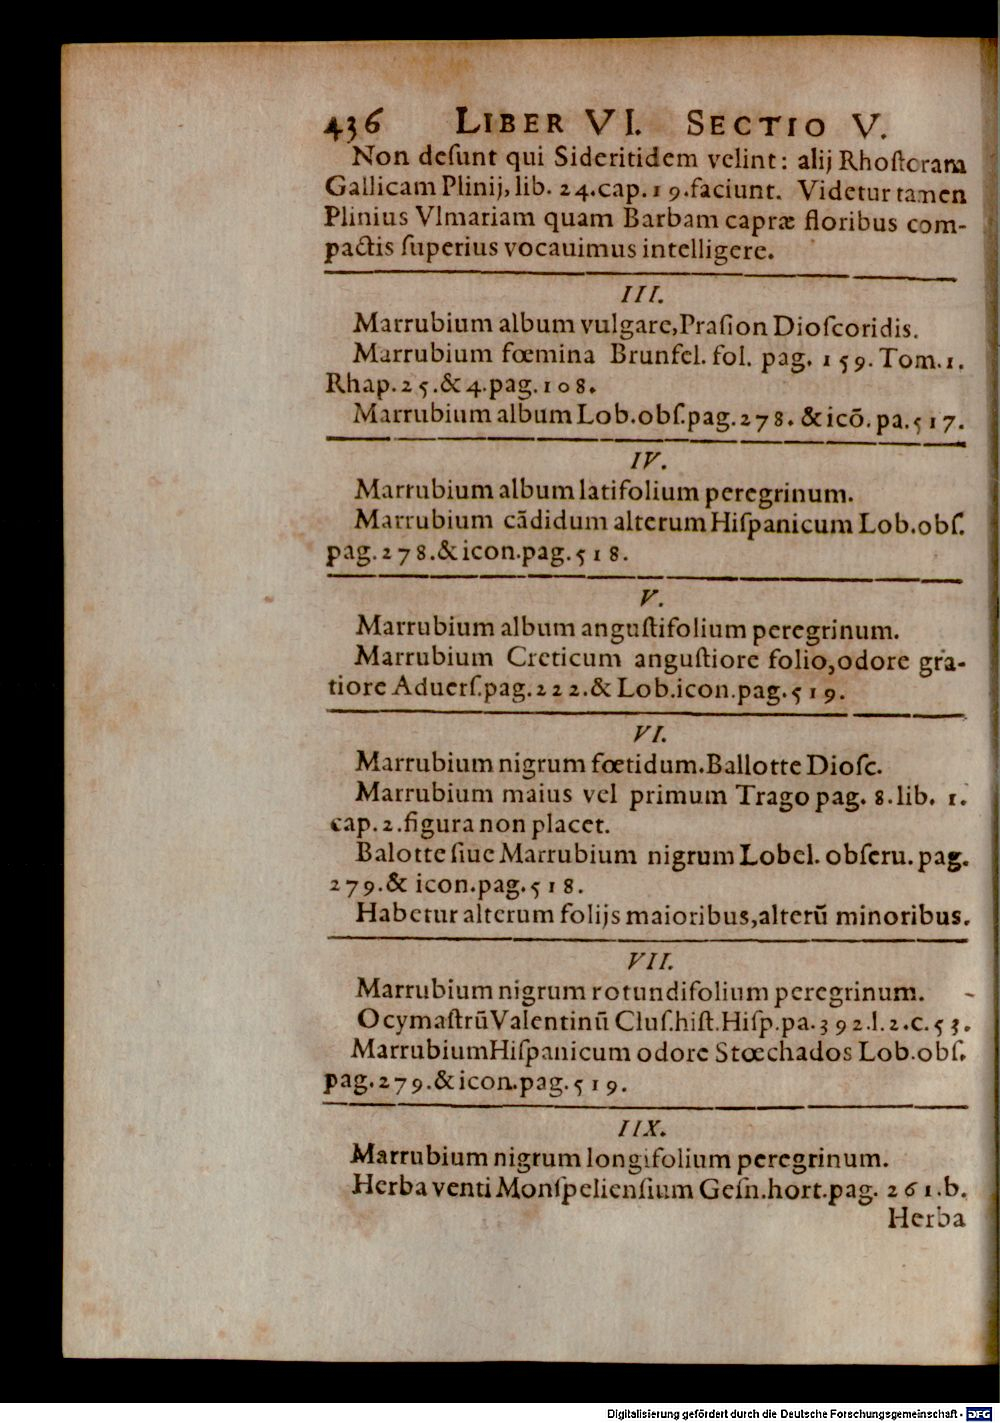 436 LIBER VI. SECTIO V.
Non deſunt qui Sideritidem velint: alij Rhoſtoram
Gallicam Plinij, lib. 24.cap.19.faciunt. Videtur tamen
Plinius Vlmariam quam Barbam capræ floribus com-
pactis ſuperius vocauimus intelligere.
III.
Marrubium album vulgare,Praſion Dioſcoridis.
Marrubium fœmina Brunfel. fol. pag. 159. Tom.1.
Rhap.25.&4.pag.108.
Marrubium album Lob.obſ.pag.278. & icõ. pa.517.
IV.
Marrubium album latifolium peregrinum.
Marrubium cãdidum alterum Hiſpanicum Lob.obſ.
pag.278.& icon.pag.518.
V.
Marrubium album anguſtifolium peregrinum.
Marrubium Creticum anguſtiore folio,odore gra-
tiore Aduerſ.pag.222.& Lob.icon.pag.519.
VI.
Marrubium nigrum fœtidum.Ballotte Dioſc.
Marrubium maius vel primum Trago pag. 8.lib. 1.
cap.2.figura non placet.
Balotte ſiue Marrubium nigrum Lobel. obſeru. pag.
279.& icon.pag.518.
Habetur alterum folijs maioribus,alterũ minoribus.
VII.
Marrubium nigrum rotundifolium peregrinum.
Ocymaſtrũ Valentinũ Cluſ.hiſt.Hiſp.pa.392.l.2.c.53.
Marrubium Hiſpanicum odore Stœchados Lob.obſ.
pag.279.& icon.pag.519.
IIX.
Marrubium nigrum longifolium peregrinum.
Herba venti Monſpelienſium Geſn.hort.pag. 261.b.
Herba
Digitalisierung gefördert durch die Deutsche Forschungsgemeinschaft - DFG